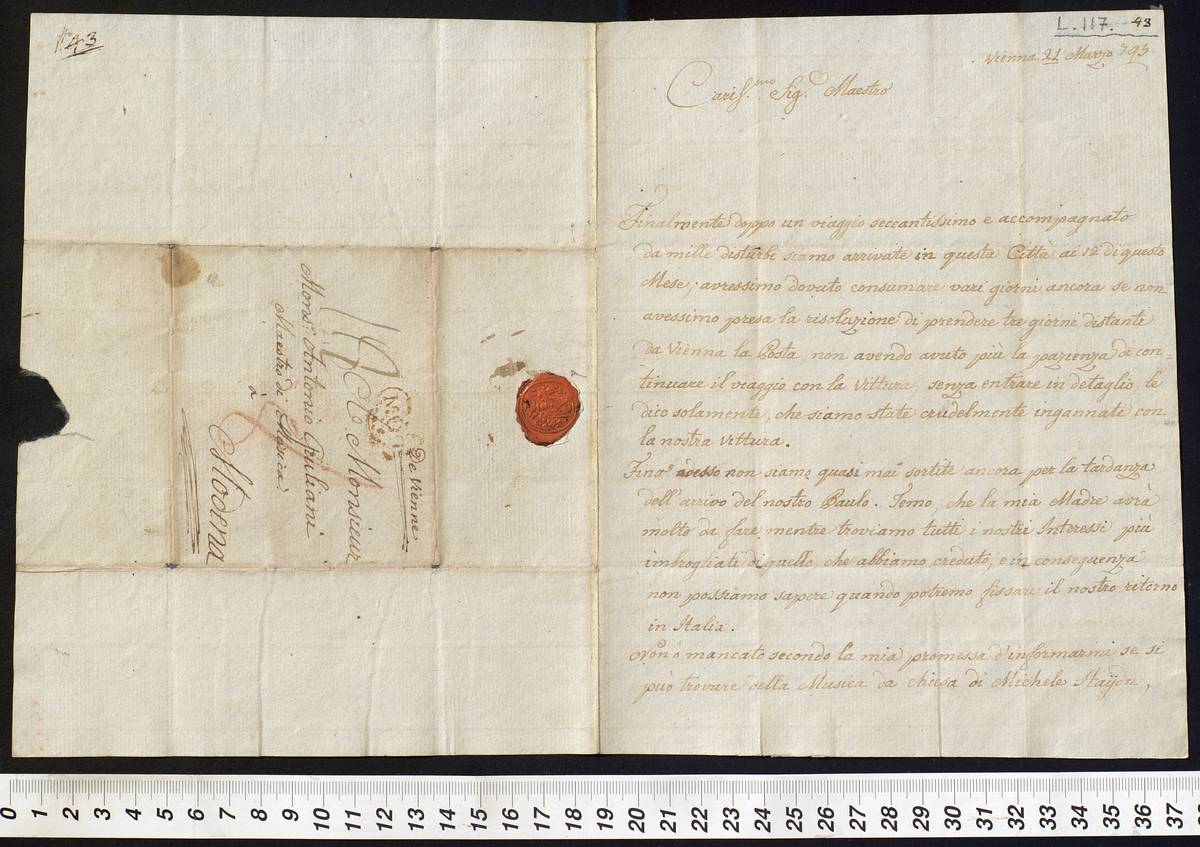 N.º 43
De Vienne
A Monsieur
Monsr. Antonio Giuliani
Maestro di Musica
à
Modena
L. 117. 43
Vienna 21 Marzo 795
Cariss.mo Sig.e Maestro
Finalmente doppo un viaggio seccantissimo e accompagnato
da mille disturbi siamo arrivate in questa Città ai 12 di questo
Mese; avressimo dovuto consumare vari giorni ancora se non
avessimo presa la risoluzione di prendere tre giorni distanti
da Vienna la Posta non avendo avuto più la pazienza di con=
tinuare il viaggio con la Vittura; senza entrare in detaglio, le
dico solamente, che siamo state crudelmente ingannate con
la nostra Vittura.
Fino adesso non siamo quasi mai sortite ancora per la tardanza
dell'arrivo del nostro Paulo. Temo, che la mia Madre avrà
molto da fare, mentre troviamo tutti i nostri Interessi più
imbrogliati di quello, che abbiamo creduto, e in conseguenza
non possiamo sapere quando potremo fissare il nostro ritorno
in Italia.
Non ò mancato secondo la mia promessa d'informarmi se si
può trovare della Musica da chiesa di Michele Haydn,
0 1 2 3 4 5 6 7 8 9 10 11 12 13 14 15 16 17 18 19 20 21 22 23 24 25 26 27 28 29 30 31 32 33 34 35 36 37